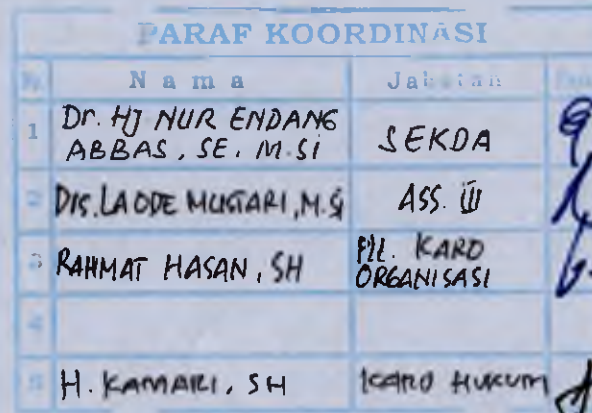 PARAF KOORDINASI
Nama Jabatan
1 Dr. HJ NUR ENDANG ABBAS, SE. M.SI SEKDA
2 Drs. LA ODE MUSTARI, M.Si ASS. III
3 RAHMAT HASAN, SH Plt. KARO ORGANISASI
4
5 H. KAMARI, SH KARO HUKUM